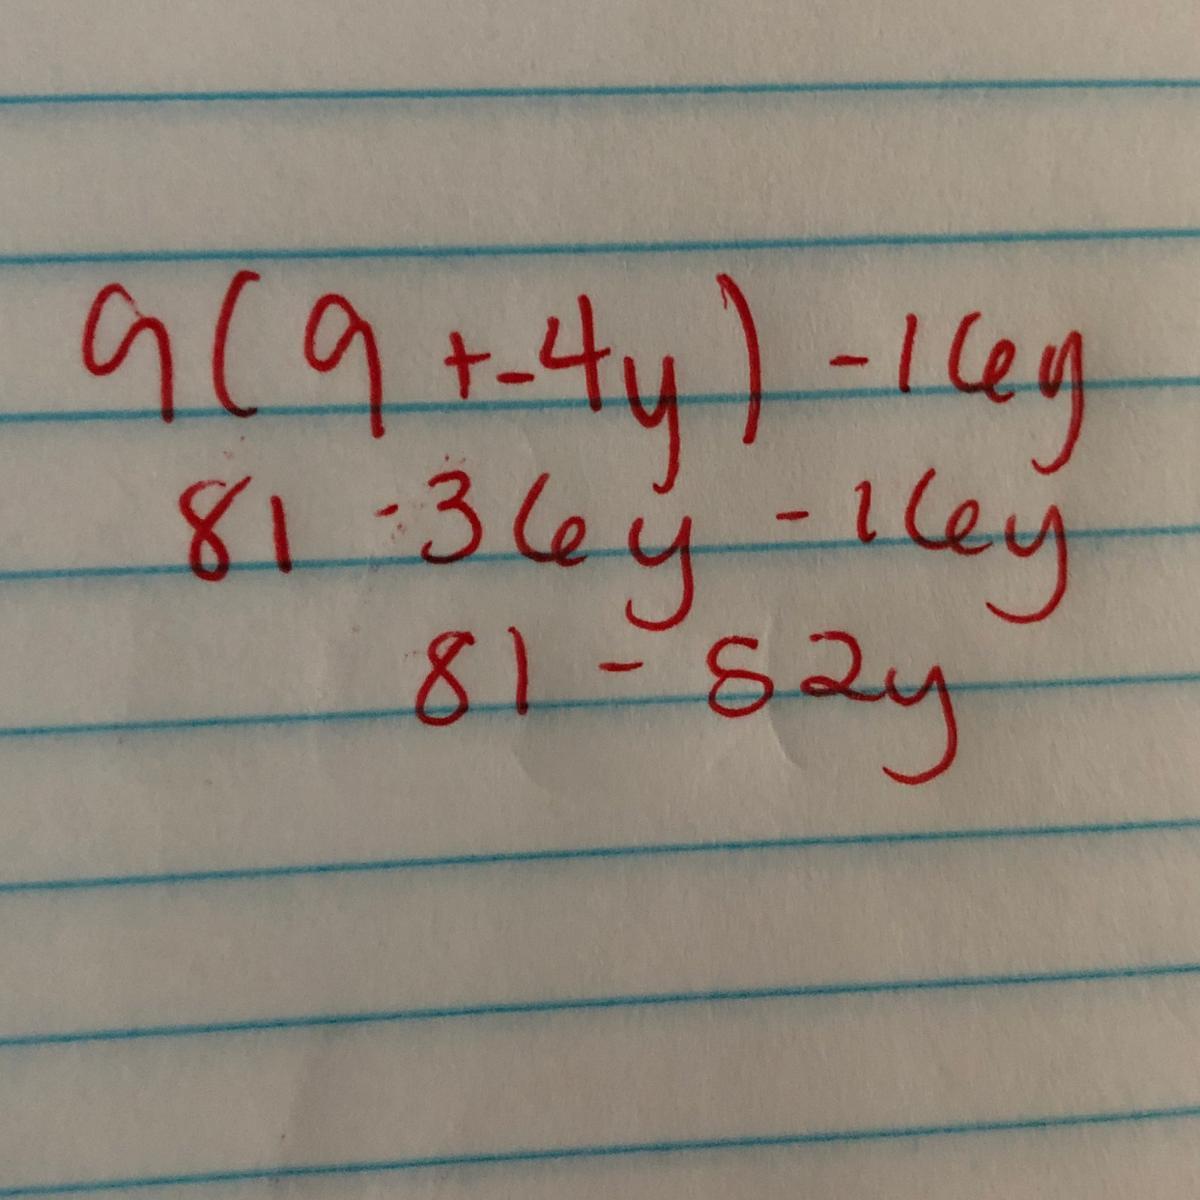 9(9+-4y)-16y
81-36y-16y
81-52y